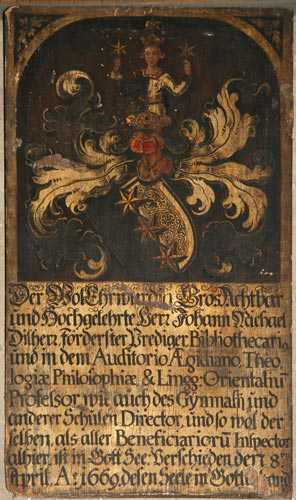 Der WolEhrwürdig Gros Achtbar
und Hochgelehrte Herr Johann Michael
Dilherr förderster Prediger Bibliothecari9
und in dem Auditorio Ægidiano, Theo
logiæ Philosophiæ, & Lingg: Orientaliū
Professor, wie auch des Gymnasij und
anderer Schulen Director, und so wol der
selben, als aller Beneficiariorū Inspector
alhier, ist in Gott See: Verschieden den 8
April, Aō: 1669, desen Seele in Gott